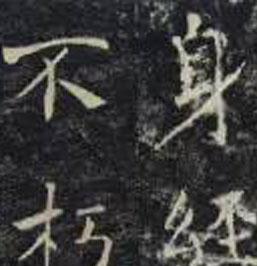 身經
不朽